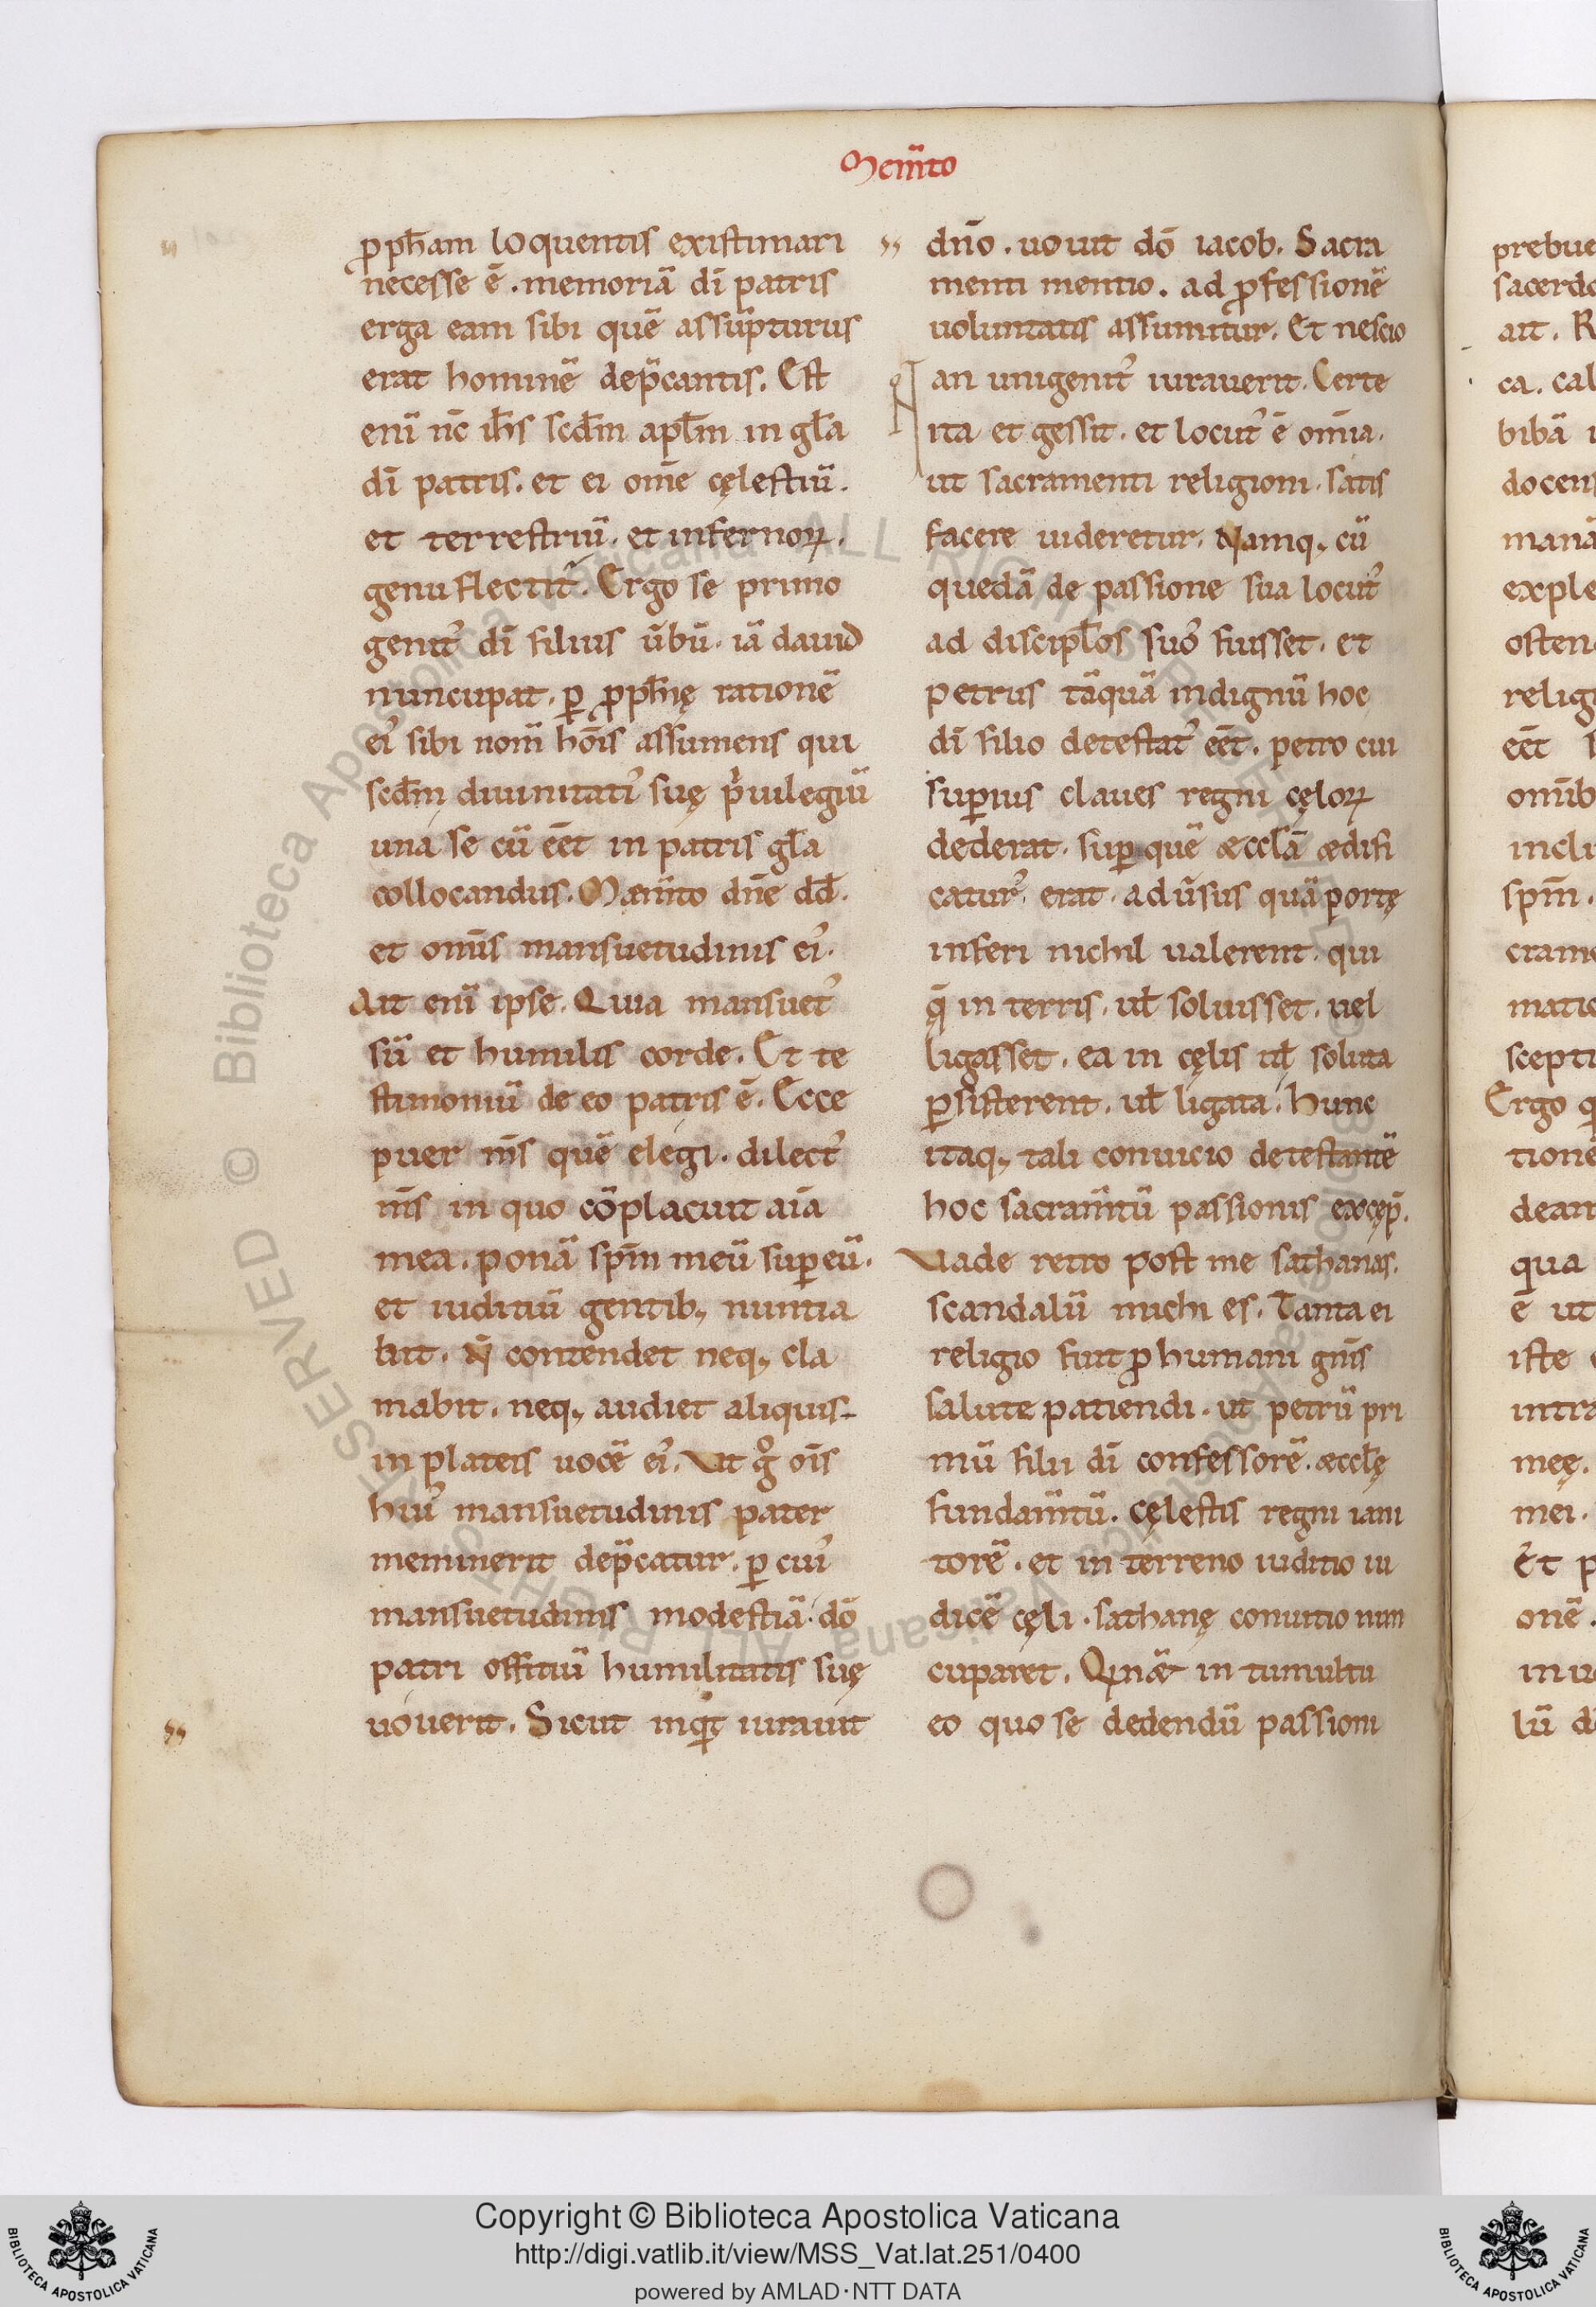 Mem̄to
ꝓph̄am loquentis existimari
necesse ē. memoriā dī patris
erga eam sibi quē assūpturus
erat hominē dep̄cantis. Est
enī nc̄ ih̄s scđm apłm in gła
dī patris. et ei om̄e cęlestiū.
et terrestriū. et infernoꝝ.
genu flectit᷒. Ergo se primo
genit᷒ dī filius ūbū. iā dauid
nuncupat. ꝑ ꝓph̄ię rationē
ei᷒ sibi nom̄ hōis assumens qui
scđm diuinitati᷒ suę p̾uilegiū
una se cū eēt in patris gła
collocandus. Mem̄to dn̄e dđ.
et om̄is mansuetudinis ei᷒.
Ait enī ipse. Quia mansuet᷒
sū et humilis corde. Et te
stimoniū de eo patris ē. Ecce
puer m̄s quē elegi. dilect᷒
m̄s in quo cōplacuit aīa
mea. ponā sp̄m meū suꝑ eū.
et iuditiū gentibꝫ nuntia
bit. N̄ contendet neqꝫ cla
mabit. neqꝫ audiet aliquis
in plateis uocē ei᷒. Vt gͦ oīs
hui᷒ mansuetudinis pater
meminerit dep̄catur. ꝑ cui᷒
mansuetudinis modestiā dō
patri offitiū humilitatis suę
uouerit. Sicut inqͥt iurauit
dn̄o. uouit dō iacob. Sacra
menti mentio. ad ꝓfessionē
uoluntatis assumitur. Et nescio
an unigenit᷒ iurauerit. Certe
ita et gessit. et locut᷒ ē om̄ia.
ut sacramenti religioni. satis
facere uideretur. Namqꝫ cū
quedā de passione sua locut᷒
ad discipłos suo᷒ fuisset. et
petrus tāquā indignū hoc
dī filio detestat᷒ eēt. petro cui
suꝑius claues regni cęloꝝ
dederat. suꝑ quē æccłā ædifi
catur᷒ erat. adūsus quā portę
inferi nichil ualerent. qui
q̄ in terris. uł soluisset. uel
ligasset. ea in cęlis uł soluta
ꝑsisterent. uł ligata. hunc
itaqꝫ tali conuicio detestantē
hoc sacram̄tū passionis excęp̄.
Vade retro post me sathanas.
scandalū michi es. Tanta ei
religio fuit ꝓ humani gn̄is
salute patiendi. ut petrū pri
mū filii dī confessorē. æccłę
fundam̄tū. cęlestis regni iani
torē. et in terreno iuditio iu
dicē cęli. sathanę conuitio nun
cuparet. Qinæ in tumultu
eo quo se dedendū passioni
prebue
sacerdo
ait. R
ca. cal
bibā
docens
manā
exple
osten
religi
eēt
om̄ib
inclu
sp̄m.
crame
matio
scepti
Ergo q
tione
dean
qua
ē ut
iste
intra
meę.
mei.
Et p
onē.
in u
lū d
Copyright © Biblioteca Apostolica Vaticana
http://digi.vatlib.it/view/MSS_Vat.lat.251/0400
powered by AMLAD·NTT DATA
BIBLIOTECA APOSTOLICA VATICANA
BIBLIOTECA APOSTOLICA VATICANA